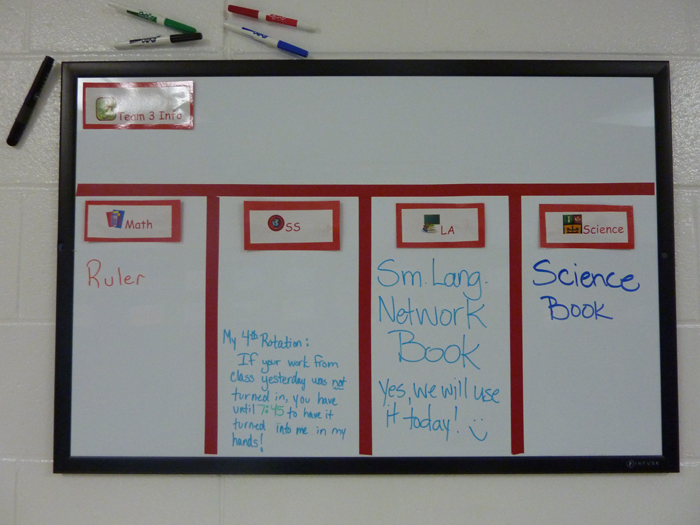 Team 3 Info
Math
Ruler
SS
My 4th Rotation:
If your work from
class yesterday was not
turned in, you have
until 7:45 to have it
turned into me in my
hands!
LA
Sm. Lang.
Network
Book
Yes, we will use
it today!
Science
Science
Book